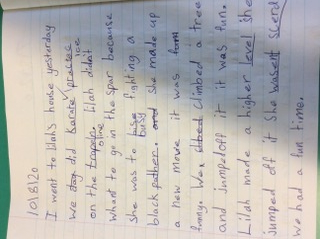 10/8/20
I went to lilah's house yesterday
we did karate
on the Lilah didn't
whant to go in the spar because
she was to busy fighting a
black pather. she made up
a new move it was
funny. We climbed a tree
and jumped off it it was fun.
Lilah made a higher level she
jumped off it she wasent scerd
we had a fun time.